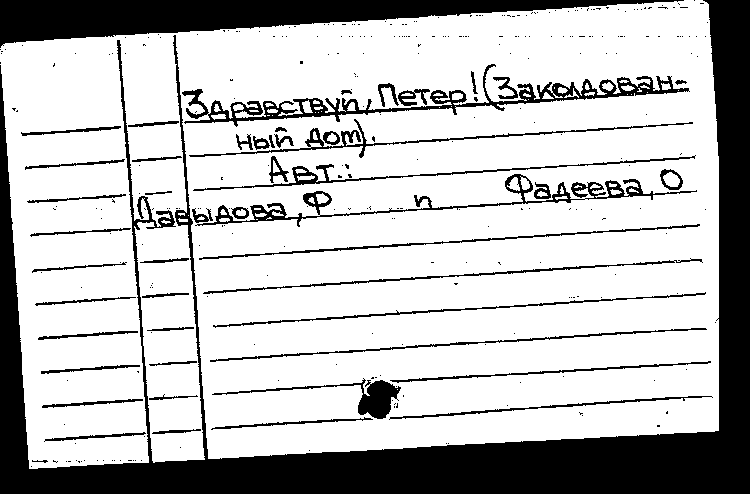 Здравствуй, Петер! (Заколдован-
ный дом).
Авт.:
Давыдова, Ф и Фадеева, О